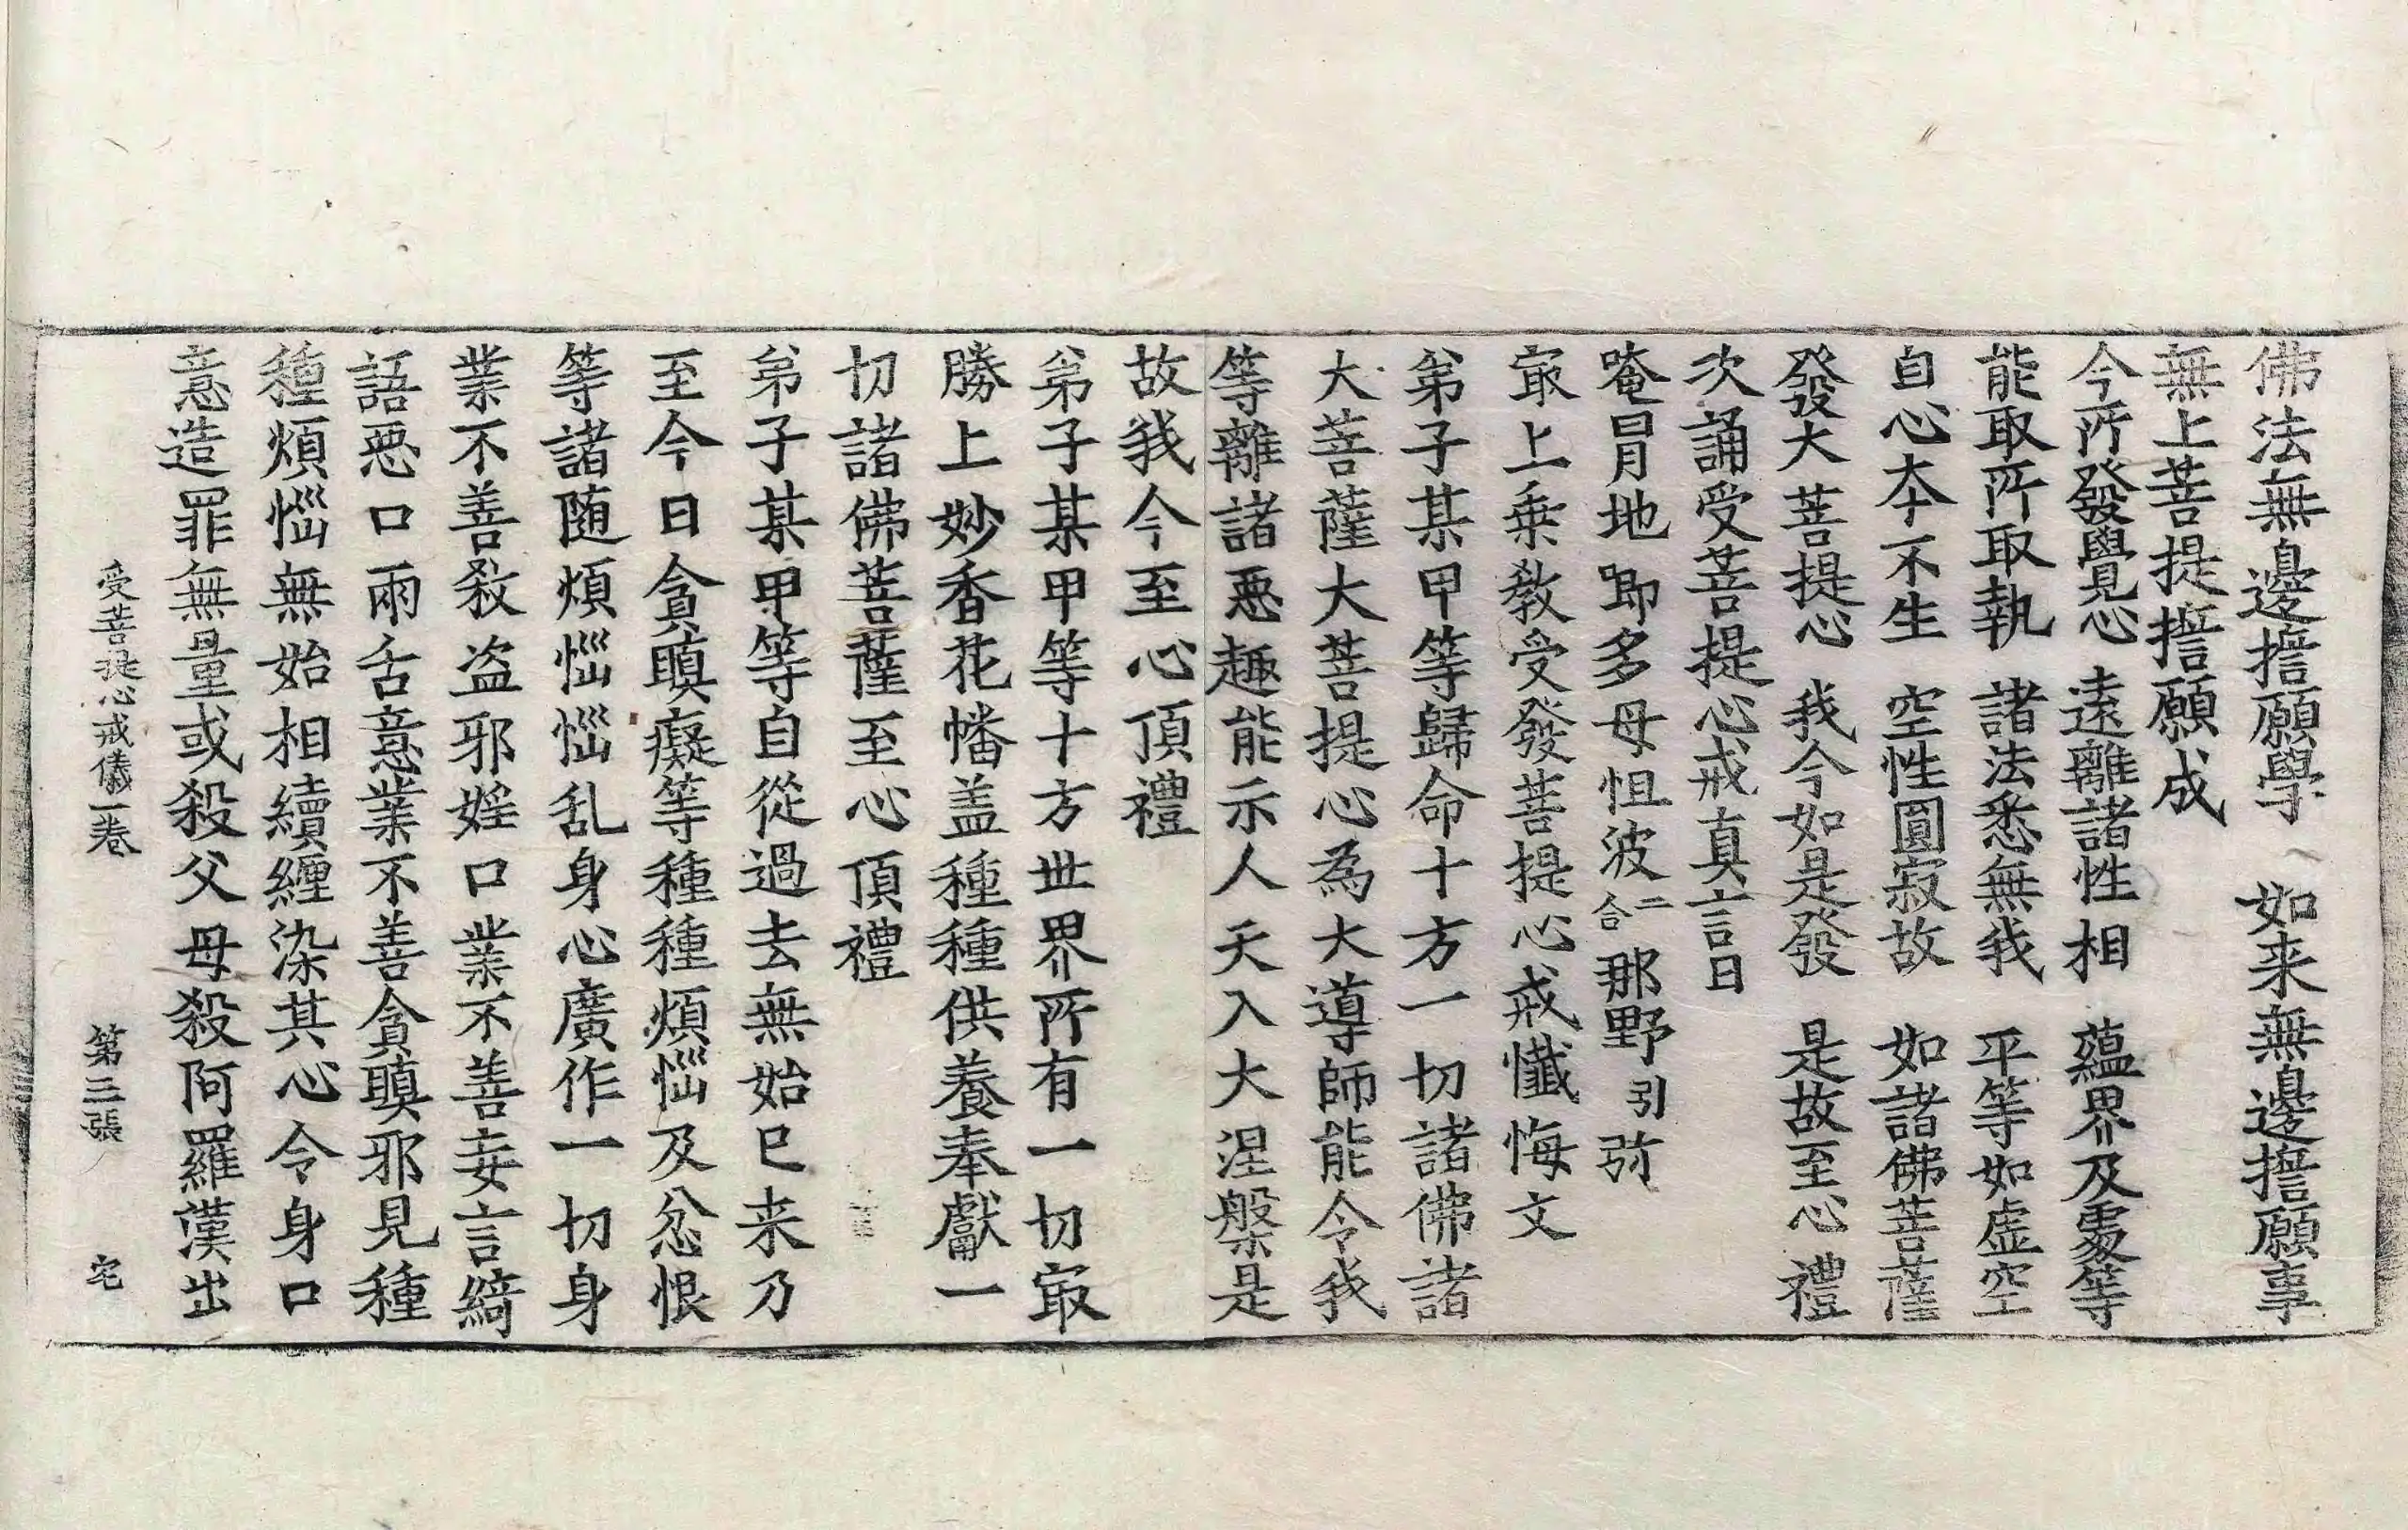 佛法無邊誓願學　如来無邊誓願事
無上菩提誓願成
今所發覺心　遠離諸性相　蘊界及處等
能取所取執　諸法悉無我　平等如虛空
自心本不生　空性圓寂故　如諸佛菩薩
發大菩提心　我今如是發　是故至心禮
次誦受菩提心戒真言曰
唵冒地唧多母怛波二合那野引弥
㝡上乗教受發菩提心戒懺悔文
弟子某甲等歸命十方一切諸佛諸
大菩薩大菩提心為大導師能令我
等離諸惡趣能示人天入大涅槃是
故我今至心頂禮
弟子某甲等十方世界所有一切㝡
勝上妙香花幡盖種種供養奉獻一
切諸佛菩薩至心頂禮
弟子某甲等自從過去無始已来乃
至今日貪瞋癡等種種煩惱及忿恨
等諸随煩惱惱乱身心廣作一切身
業不善殺盗邪婬口業不善妄言綺
語惡口兩舌意業不善貪瞋邪見種
種煩惱無始相續纒染其心令身口
意造罪無量或殺父母殺阿羅漢出
受菩提心戒儀一卷　第三張　宅